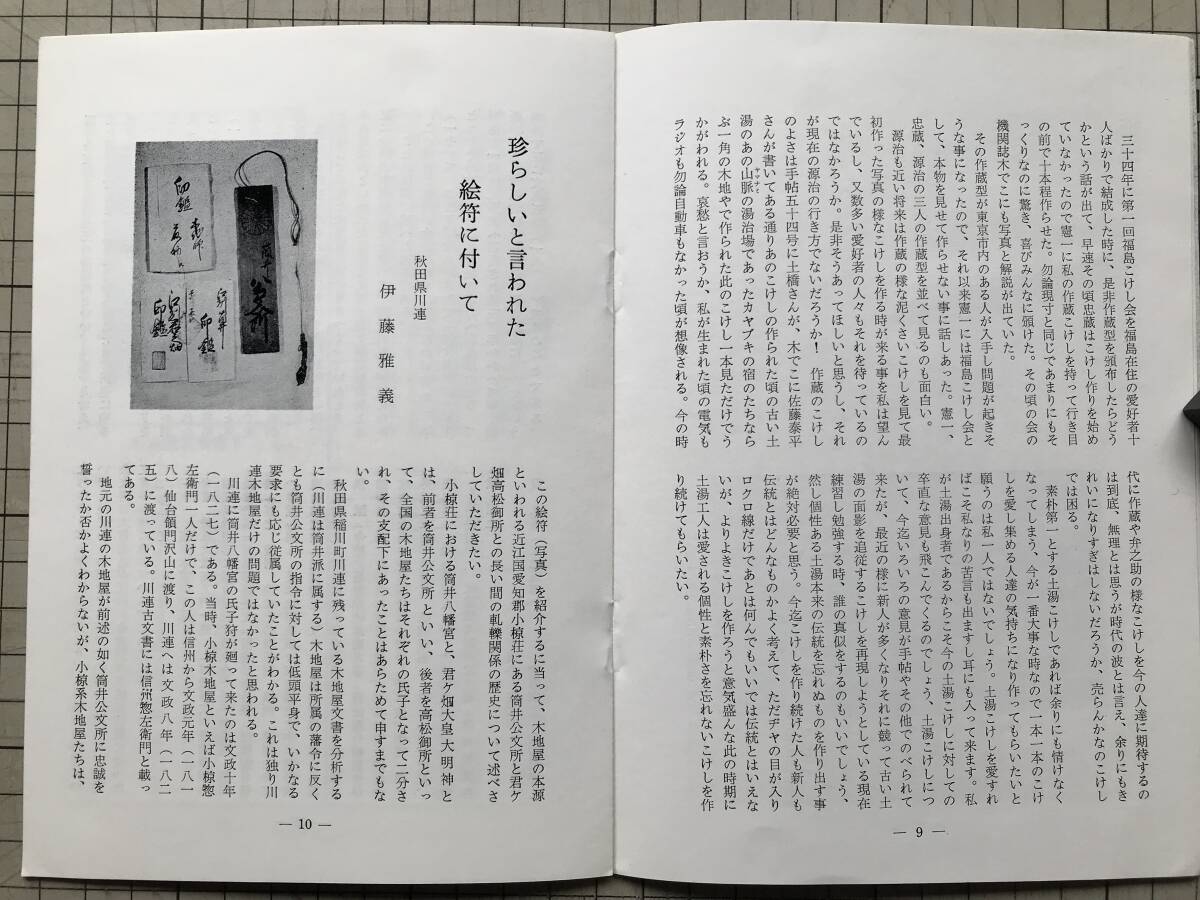 三十四年に第一回福島こけし会を福島在住の愛好者十
人ばかりで結成した時に、是非作蔵型を頒布したらどう
かという話が出て、早速その頃忠蔵はこけし作りを始め
ていなかったので憲一に私の作蔵こけしを持って行き目
の前で十本程作らせた。勿論現寸と同じであまりにもそ
っくりなのに驚き、喜びみんなに頒けた。その頃の会の
機関誌木でこにも写真と解説が出ていた。
その作蔵型が東京市内のある人が入手し問題が起きそ
うな事になったので、それ以来憲一には福島こけし会と
して、本物を見せて作らせない事に話しあった。憲一、
忠蔵、源治の三人の作蔵型を並べて見るのも面白い。
源治も近い将来は作蔵の様な泥くさいこけしを見て最
初作った写真の様なこけしを作る時が来る事を私は望ん
でいるし、又数多い愛好者の人々もそれを待っているの
ではなかろうか。是非そうあってほしいと思うし、それ
が現在の源治の行き方でないだろうか! 作蔵のこけし
のよさは手帖五十四号に土橋さんが、木でこに佐藤泰平
さんが書いてある通りあのこけしの作られた頃の古い土
湯のあの山脈の湯治場であったカヤブキの宿のたちなら
ヤマナミ
ぶ一角の木地やで作られた此のこけし一本見ただけでう
かがわれる。哀愁と言おうか、私が生まれた頃の電気も
ラジオも勿論自動車もなかった頃が想像される。今の時
代に作蔵や弁之助の様なこけしを今の人達に期待するの
は到底、無理とは思うが時代の波とは言え、余りにもき
れいになりすぎはしないだろうか、売らんかなのこけし
では困る。
素朴第一とする土湯こけしであれば余りにも情けなく
なってしまう、今が一番大事な時なので一本一本のこけ
しを愛し集める人達の気持ちになり作ってもらいたいと
願うのは私一人ではないでしょう。土湯こけしを愛すれ
ばこそ私なりの苦言も出ますし耳にも入って来ます。私
が土湯出身者であるからこそ今の土湯こけしに対しての
卒直な意見も飛こんでくるのでしょう、土湯こけしにつ
いて、今迄いろいろの意見が手帖やその他でのべられて
来たが、最近の様に新人が多くなりそれに競って古い土
湯の面影を追従するこけしを再現しようとしている現在
練習し勉強する時、誰の真似をするのもいいでしょう、
然し個性ある土湯本来の伝統を忘れぬものを作り出す事
が絶対必要と思う。今迄こけしを作り続けた人も新人も
伝統とはどんなものかよく考えて、ただヂヤの目が入り
ロクロ線だけであとは何んでもいいでは伝統とはいえな
いが、よりよきこけしを作ろうと意気盛んな此の時期に
土湯工人は愛される個性と素朴さを忘れないこけしを作
り続けてもらいたい。
— 9 —
珍らしいと言われた
絵符に付いて
秋田県川連
伊藤雅義
印鑑
印鑑
印鑑
この絵符(写真)を紹介するに当って、木地屋の本源
といわれる近江国愛知郡小椋荘にある筒井公文所と君ケ
畑高松御所との長い間の軋轢関係の歴史について述べさ
していただきたい。
小椋荘における筒井八幡宮と、君ケ畑大皇大明神と
は、前者を筒井公文所といい、後者を高松御所といっ
て、全国の木地屋たちはそれぞれの氏子となって二分さ
れ、その支配下にあったことはあらためて申すまでもな
い。
秋田県稲川町川連に残っている木地屋文書を分析する
に(川連は筒井派に属する)木地屋は所属の藩令に反く
とも筒井公文所の指令に対しては低頭平身で、いかなる
要求にも応じ従属していたことがわかる。これは独り川
連木地屋だけの問題ではなかったと思われる。
川連に筒井八幡宮の氏子狩が廻って来たのは文政十年
(一八二七)である。当時、小椋木地屋といえば小椋惣
左衛門一人だけで、この人は信州から文政元年(一八一
八)仙台領門沢山に渡り、川連へは文政八年(一八二
五)に渡っている。川連古文書には信州惣左衛門と載っ
てある。
地元の川連の木地屋が前述の如く筒井公文所に忠誠を
誓ったか否かよくわからないが、小椋系木地屋たちは、
— 10 —